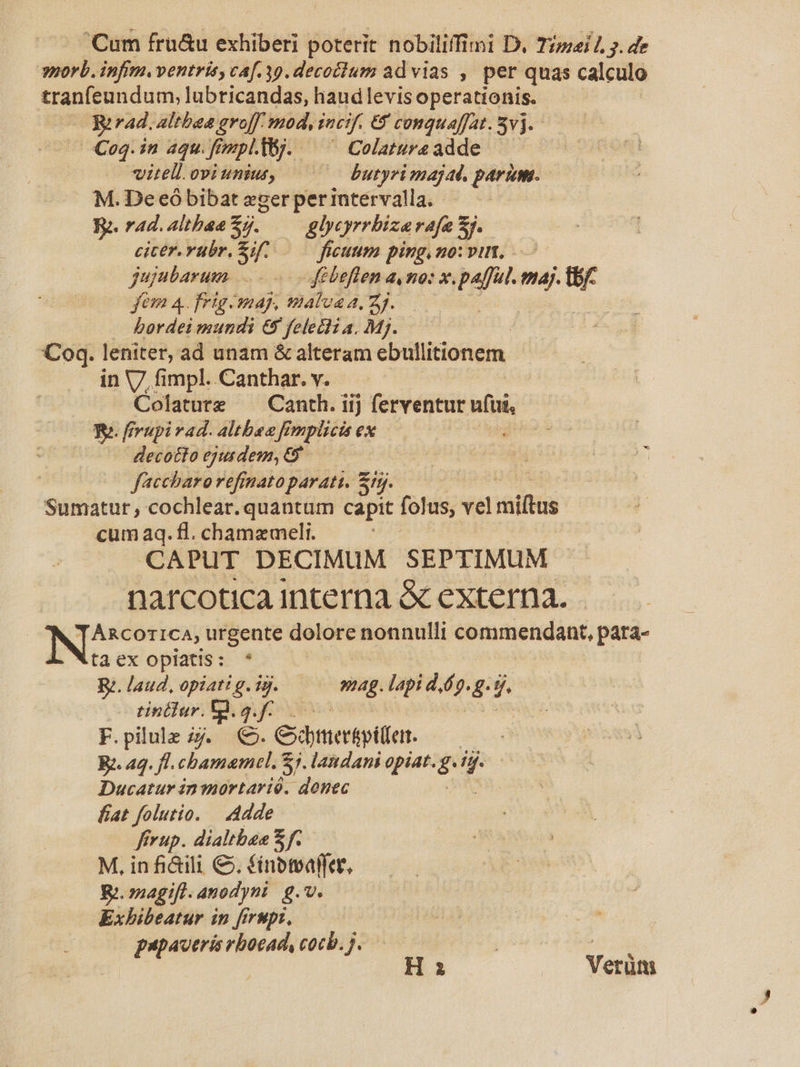 Cum fructu exhiberi poterit nobiliſſimi D. Timæi l. 3. de
morb. infim. ventris, caſ. 39. decoctum ad vias , per quas calculo
tranſeundum, lubricandas, haud levis operationis.
℞ rad. althææ groſſ. mod, inciſ. & conquaſſat. ʒvj.
Coq. in aqu. ſimpl. ℔j. Colaturæ adde
vitell. ovi unius, butyri majal. parùm.
M. De eó bibat æger per intervalla.
℞. rad. althææ ℥ij. glycyrrhizæ raſæ ℥j.
cicer. rubr. ℥iſ. ficuum ping, no: viii.
jujubarum ſebeſten a, no: x. paſſul. maj. ℔ſ.
ſem 4. frig. maj, malvæ a, ℥j.
hordei mundi & ſelecti a. Mj.
Coq. leniter, ad unam & alteram ebullitionem
in ▽, ſimpl. Canthar. v.
Colaturæ Canth. iij ſerventur uſui,
℞. ſirupi rad. althææ ſimplicis ex
decocto ejusdem, &
ſaccharo refinato parati. ℥iij.
Sumatur, cochlear. quantum capit ſolus, vel miſtus
cum aq. fl. chamæmeli.
CAPUT DECIMUM SEPTIMUM
narcotica interna & externa.
NARCOTICA, urgente dolore nonnulli commendant, para-
ta ex opiatis:
℞. laud, opiati g. iij. mag. lapid, 69. g. ij,
tinctur. q. ſ.
F. pilulæ ij. S. Schmertzpillen.
℞. aq. fl. chamæmel. ℥j. laudani opiat. g. iij.
Ducatur in mortariô. donec
fiat ſolutio. Adde
ſirup. dialthææ ℥ſ.
M, in fictili S. Lindwaſſer,
℞. magiſt. anodyni g. v.
Exhibeatur in ſirupi,
papaveris rhoead, coch. j.
H 2 Verùm